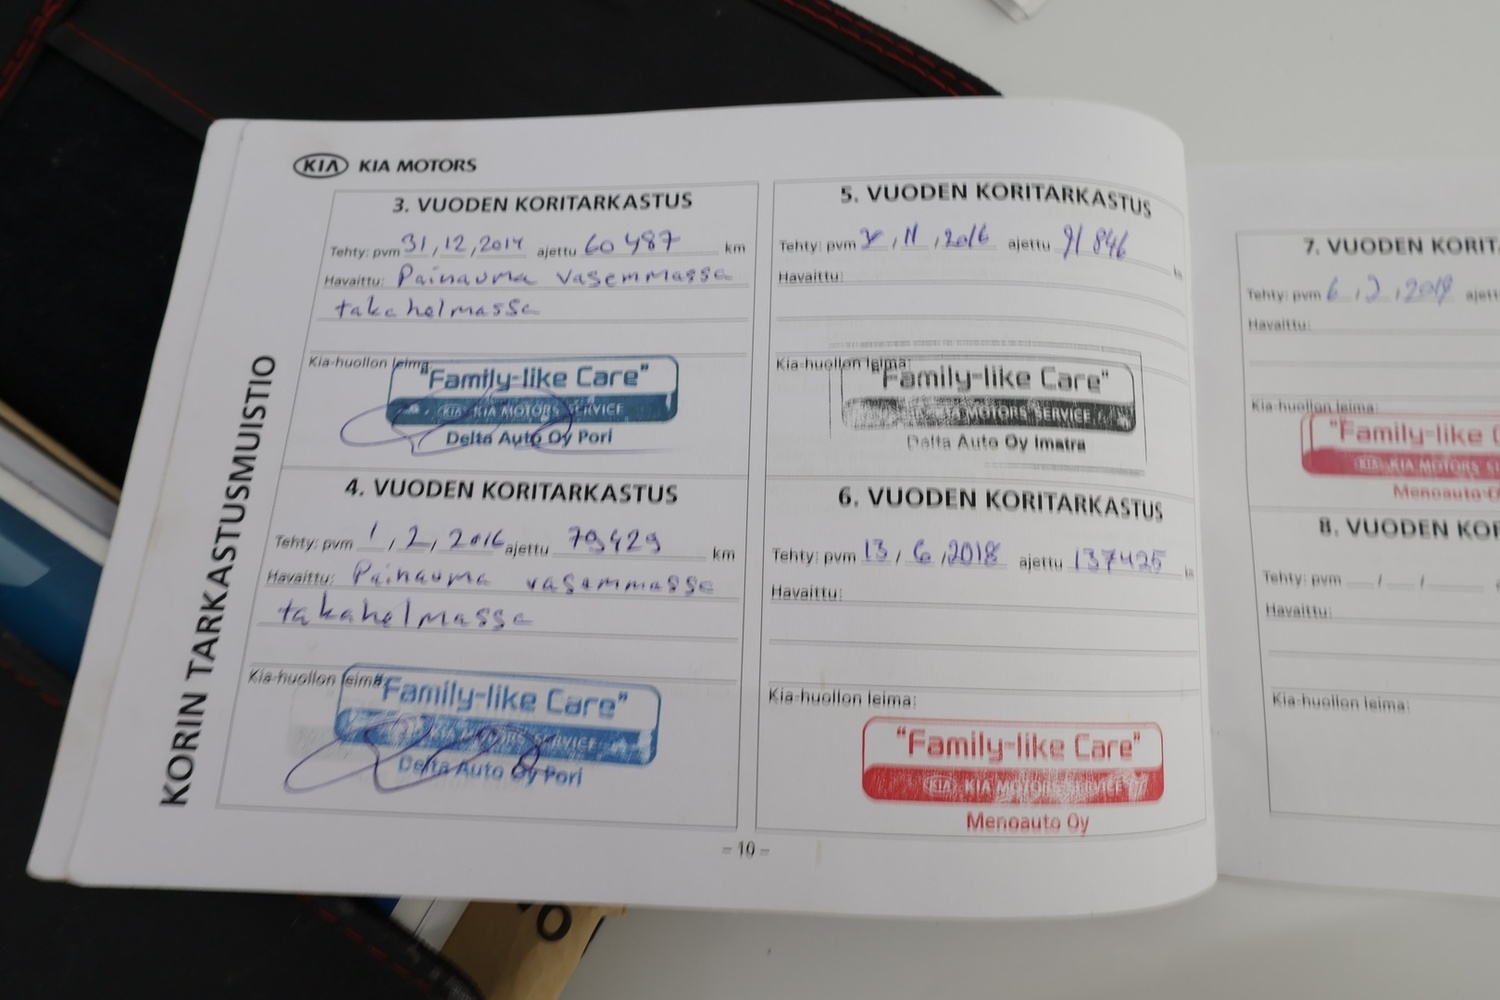 KIA KIA MOTORS
KORIN TARKASTUSMUISTIO
3. VUODEN KORITARKASTUS
Tehty: pvm 31,12,2014 ajettu 60 487 km
Havaittu: Painauma vasemmassa
takahelmassa
Kia-huollon leima:
"Family-like Care"
KIA KIA MOTORS SERVICE
Delta Auto Oy Pori
4. VUODEN KORITARKASTUS
Tehty: pvm 1,2,2016 ajettu 79429 km
Havaittu: Painauma vasemmassa
takahelmassa
Kia-huollon leima:
"Family-like Care"
KIA MOTORS SERVICE
Delta Auto Oy Pori
5. VUODEN KORITARKASTUS
Tehty: pvm , 11 , 2016 ajettu 91 846
Havaittu:
Kia-huollon leima:
"Family-like Care"
KIA MOTORS SERVICE
Delta Auto Oy Imatra
6. VUODEN KORITARKASTUS
Tehty: pvm 13 / 6 / 2018 ajettu 137425
Havaittu:
Kia-huollon leima:
"Family-like Care"
KIA KIA MOTORS SERVICE
Menoauto Oy
– 10 –
7. VUODEN KORIT
Tehty: pvm 6, , 2019 ajett
Havaittu:
Kia-huollon leima:
"Family-like
KIA KIA MOTORS
Menoauto
8. VUODEN KO
Tehty: pvm / /
Havaittu:
Kia-huollon leima: